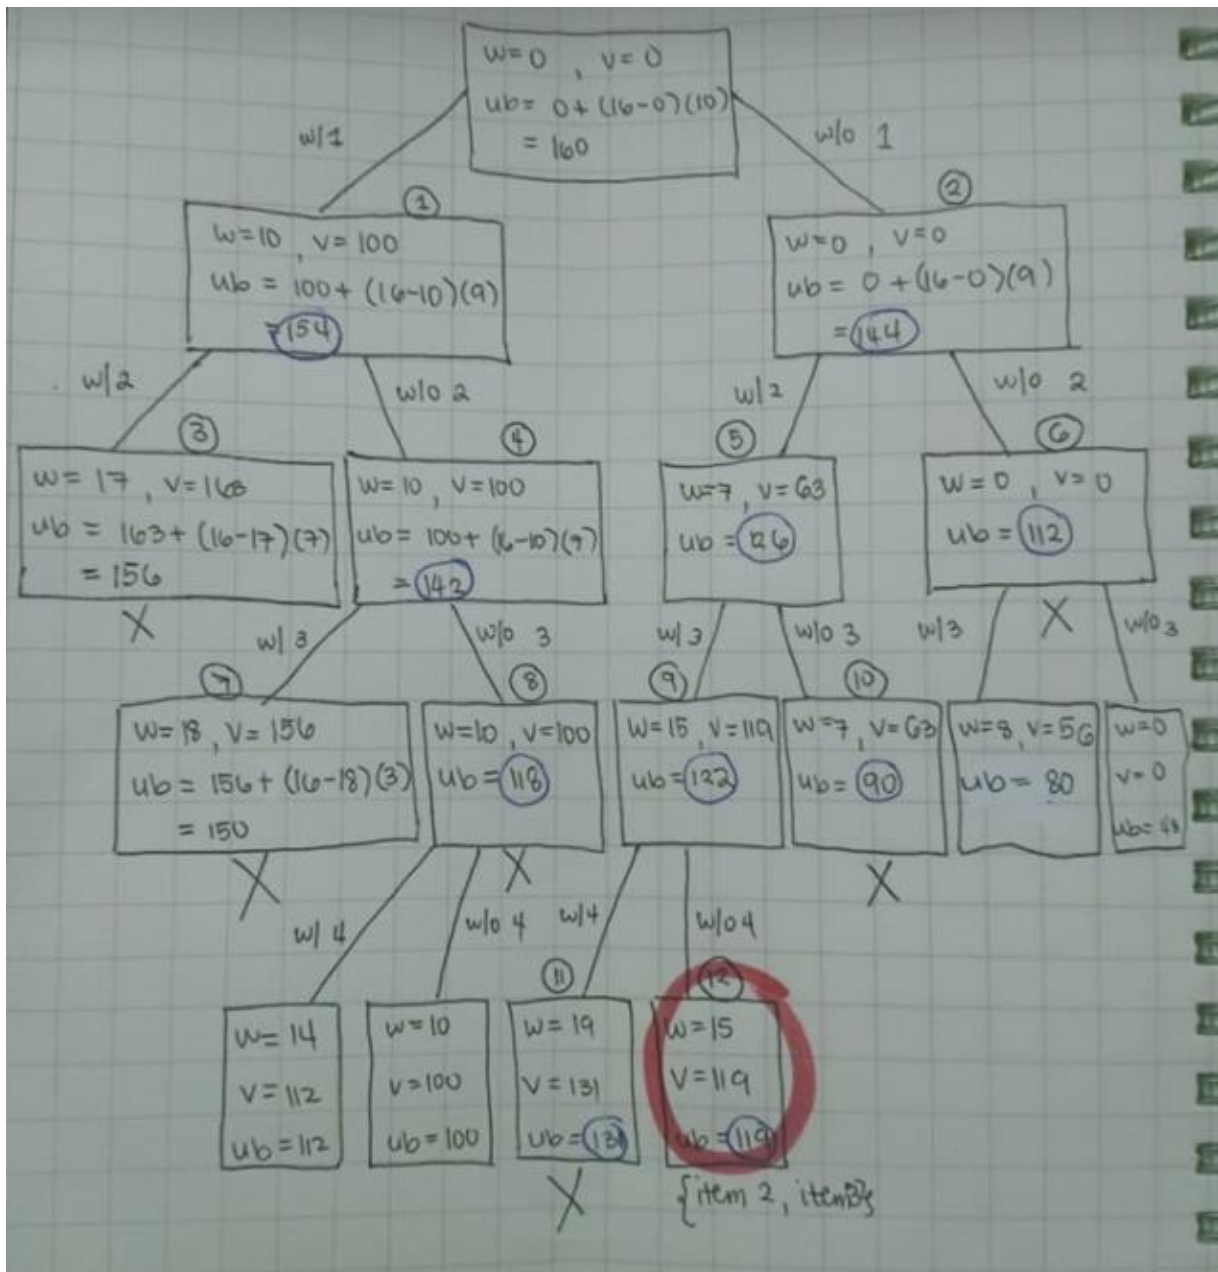 w=0 , v=0
ub= 0+(16-0)(10)
= 160
w/1
w/o 1
1
w=10 , v=100
ub= 100+(16-10)(9)
=154
2
w=0 , v=0
ub= 0+(16-0)(9)
=144
w/2
w/o 2
w/2
w/o 2
3
w= 17 , v=163
ub= 163+(16-17)(7)
= 156
X
4
w=10 , v=100
ub= 100+(16-10)(7)
=142
5
w=7, v=63
ub=126
6
w=0 , v=0
ub=112
X
w/3
w/o 3
w/3
w/o 3
w/3
w/o 3
7
w=18 , v=156
ub= 156+(16-18)(3)
= 150
X
8
w=10 , v=100
ub=118
X
9
w=15, v=119
ub=122
10
w=7, v=63
ub=90
X
w=8, v=56
ub= 80
w=0
v=0
ub=48
w/4
w/o 4
w/4
w/o 4
w=14
v=112
ub=112
w=10
v=100
ub=100
11
w=19
v=131
ub=131
X
12
w=15
v=119
ub=119
{item 2, item3}